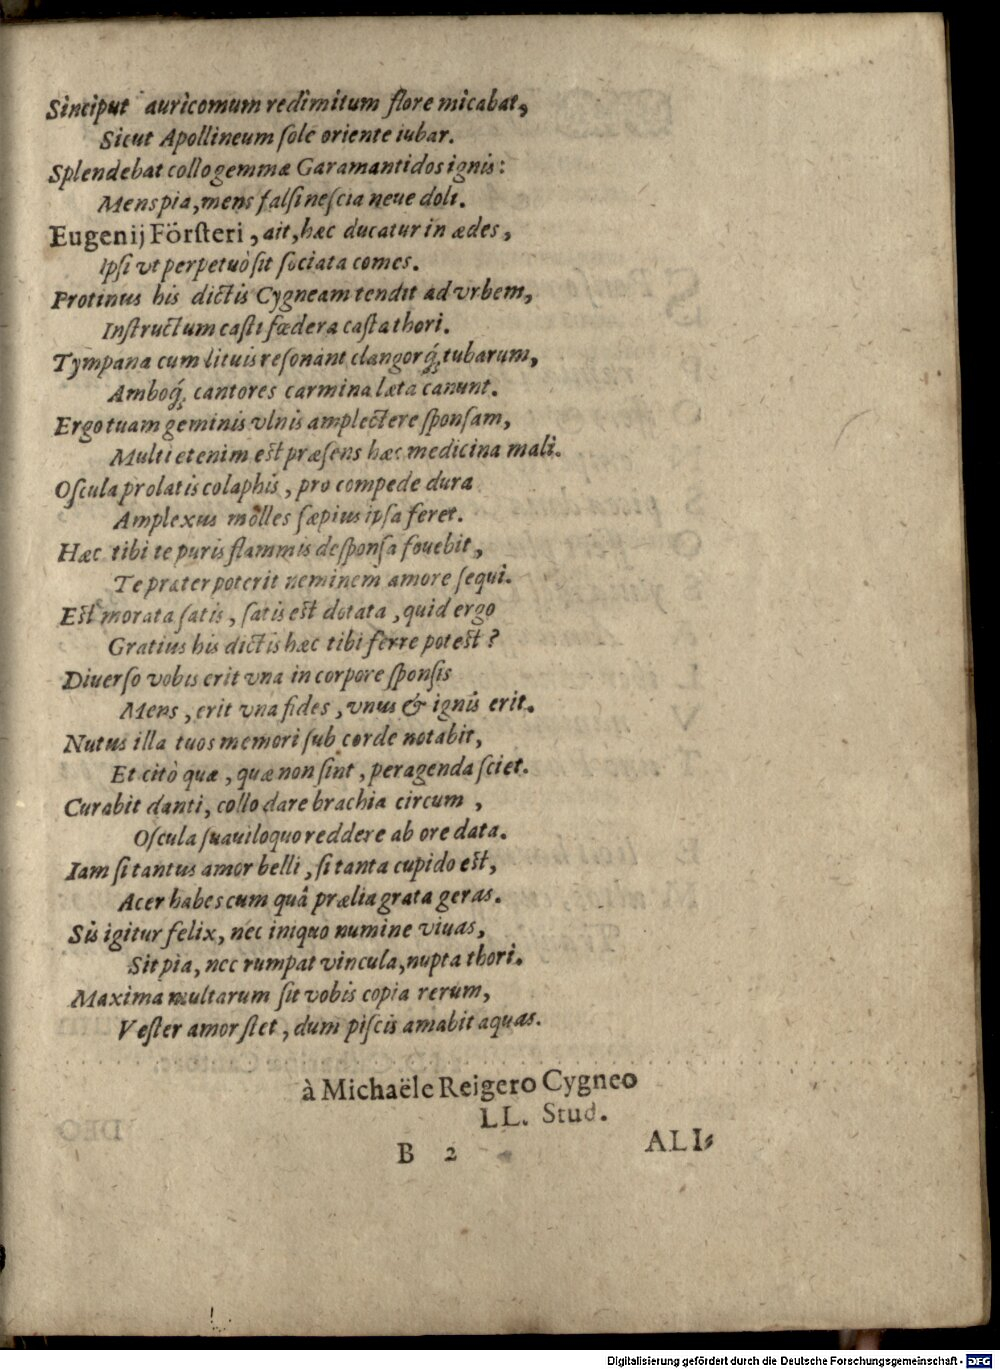 Sinciput auricomum redimitum flore micabat,
Sicut Apollineum ſole oriente iubar.
Splendebat collo gemmæ Garamantidos ignis:
Mens pia, mens falſi neſcia neve doli.
Eugenij Förſteri, ait, hæc ducatur in ædes,
Ipſi vt perpetuò ſit ſociata comes.
Protinus his dictis Cygneam tendit ad vrbem,
Inſtructum caſti fœdera caſta thori.
Tympana cum lituis reſonant clangorq́; tubarum,
Amboq́; cantores carmina læta canunt.
Ergo tuam geminis vlnis amplectere ſponſam,
Multi etenim est præſens hæc medicina mali.
Oſcula pro latis colaphis, pro compede dura
Amplexus molles ſæpius ipſa feret.
Hæc tibi te puris flammis deſponſa fovebit,
Te præter poterit neminem amore ſequi.
Est morata ſatis, ſatis est dotata, quid ergo
Gratius his dictis hæc tibi ferre potest?
Diuerſo vobis erit vna in corpore ſponſis
Mens, erit vna fides, vnus & ignis erit.
Nutus illa tuos memori ſub corde notabit,
Et citò quæ, quæ non ſint, peragenda ſciet.
Curabit danti, collo dare brachia circum,
Oſcula ſuauiloquo reddere ab ore data.
Iam ſi tantus amor belli, ſi tanta cupido est,
Acer habes cum quâ prælia grata geras.
Sis igitur felix, nec iniquo numine viuas,
Sit pia, nec rumpat vincula, nupta thori.
Maxima multarum ſit vobis copia rerum,
Veſter amor ſtet, dum piſcis amabit aquas.
à Michaële Reigero Cygneo
LL. Stud.
B 2 ALI⸗
Digitalisierung gefördert durch die Deutsche Forschungsgemeinschaft - DFG